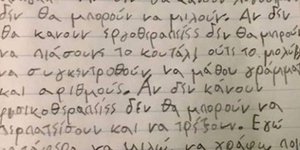 δεν θα μπορούν να μιλούν. Αν δεν
θα κανουν εργοθεραπειες δεν θα μπορούν
να πιάσουνε το κουτάλι, ούτε το μολύβι
να συγκεντροθούν να μάθου γράμματα
και αριθμους. Αν δεν κάνουν
φυσικοθεραπειες δεν θα μπορούν να
περπατίσουν και να τρέξουν. Εγώ
να μιλώ να γράφω